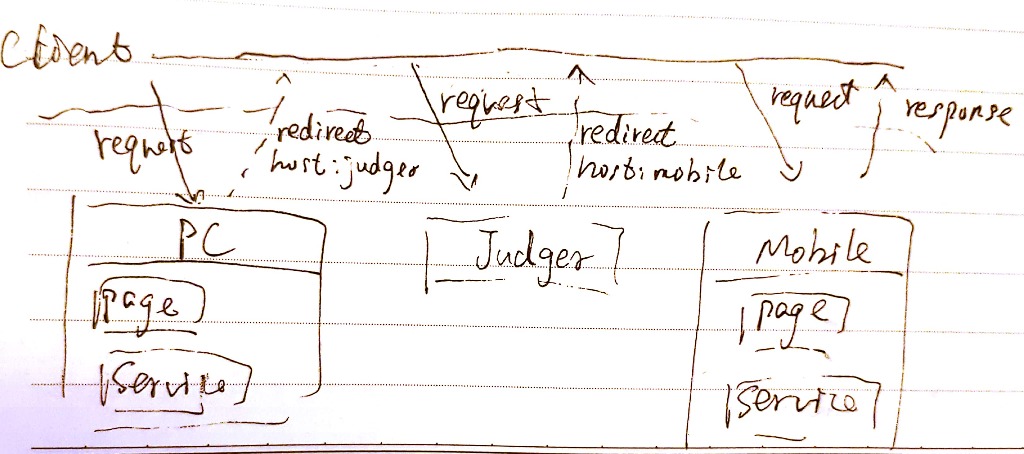 Client
request
redirect
host:judger
request
redirect
host:mobile
request
response
PC
page
Service
Judger
Mobile
page
Service